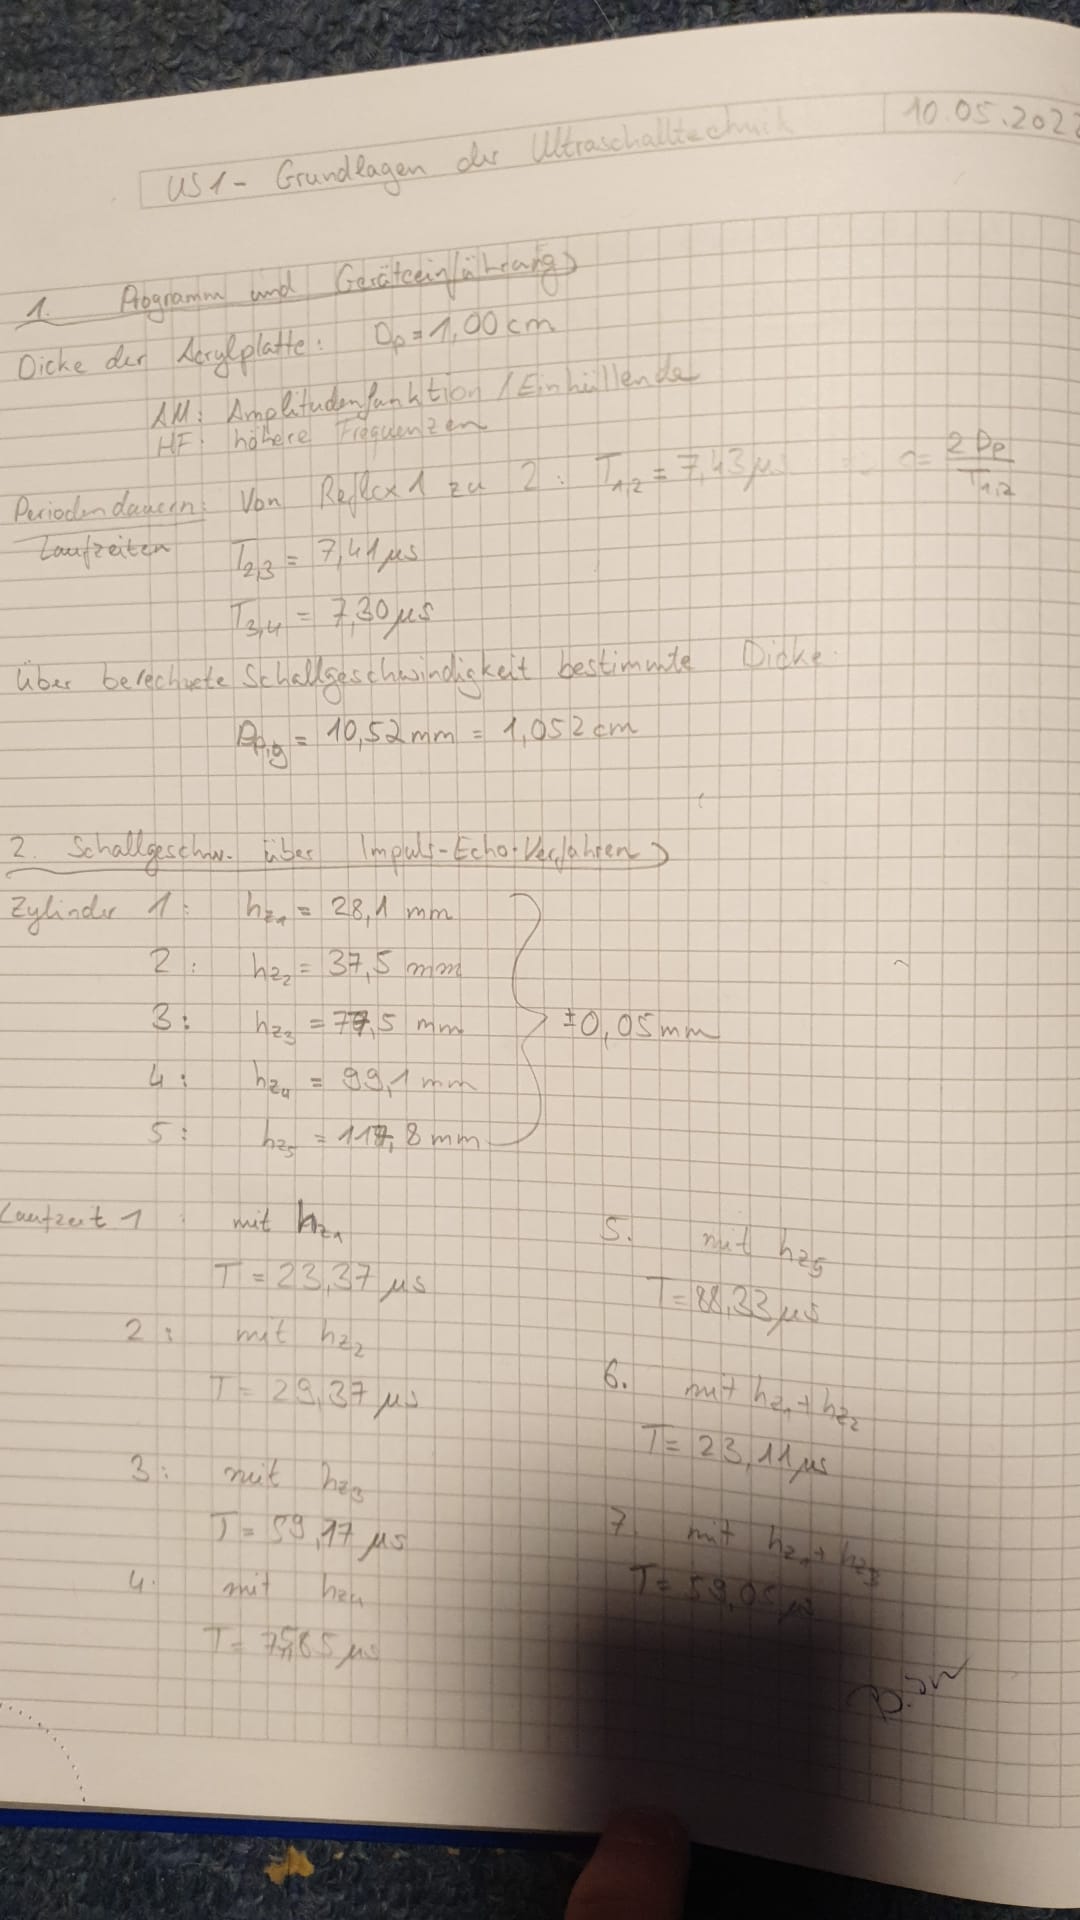 US1 - Grundlagen der Ultraschalltechnik
10.05.202
1. Programm und Geräteeinführung
Dicke der Acrylplatte: Dp = 1,00 cm
AM: Amplitudenfunktion / Einhüllende
HF: höhere Frequenzen
Periodendauern: Von Reflex 1 zu 2: T1,2 = 7,43 µs c = 2 Dp / T1,2
Laufzeiten T2,3 = 7,41 µs
T3,4 = 7,30 µs
Über berechnete Schallgeschwindigkeit bestimmte Dicke:
Dp,g = 10,52 mm = 1,052 cm
2. Schallgeschw. über Impuls-Echo-Verfahren
Zylinder 1: hz1 = 28,1 mm
2: hz2 = 37,5 mm
3: hz3 = 77,5 mm ±0,05 mm
4: hz4 = 99,1 mm
5: hz5 = 117,8 mm
Laufzeit 1: mit hz1
T = 23,37 µs
2: mit hz2
T = 29,37 µs
3: mit hz3
T = 59,17 µs
4. mit hz4
µs
5. mit hz5
T = 88,33 µs
6. mit hz1 + hz2
T = 23,11 µs
7. mit hz1 + hz3
T = 59,05 µs